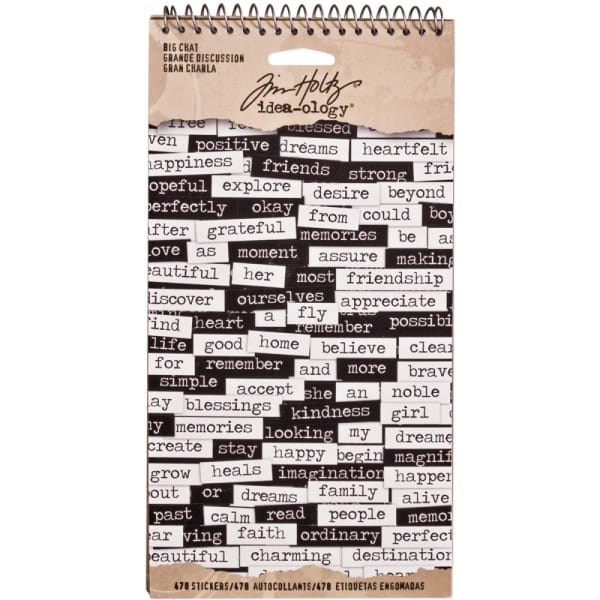 BIG CHAT
GRANDE DISCUSSION
GRAN CHARLA
Tim Holtz
idea-ology®
free blessed
ven positive dreams heartfelt
happiness friends strong frie
opeful explore desire beyond
perfectly okay from could boy
after grateful memories be as
love as moment assure making
eautiful her most friendship
discover ourselves appreciate
a fly
ind heart remember possibi
life good home believe clear
for remember and more brave
simple accept she an noble
ay blessings kindness girl
my memories looking my dreame
create stay happy begin magnif
grow heals imagination happen
out or dreams family alive
past calm read people memo
ear ving faith ordinary perfect
beautiful charming destination
478 STICKERS/478 AUTOCOLLANTS/478 ETIQUETAS ENGOMADAS